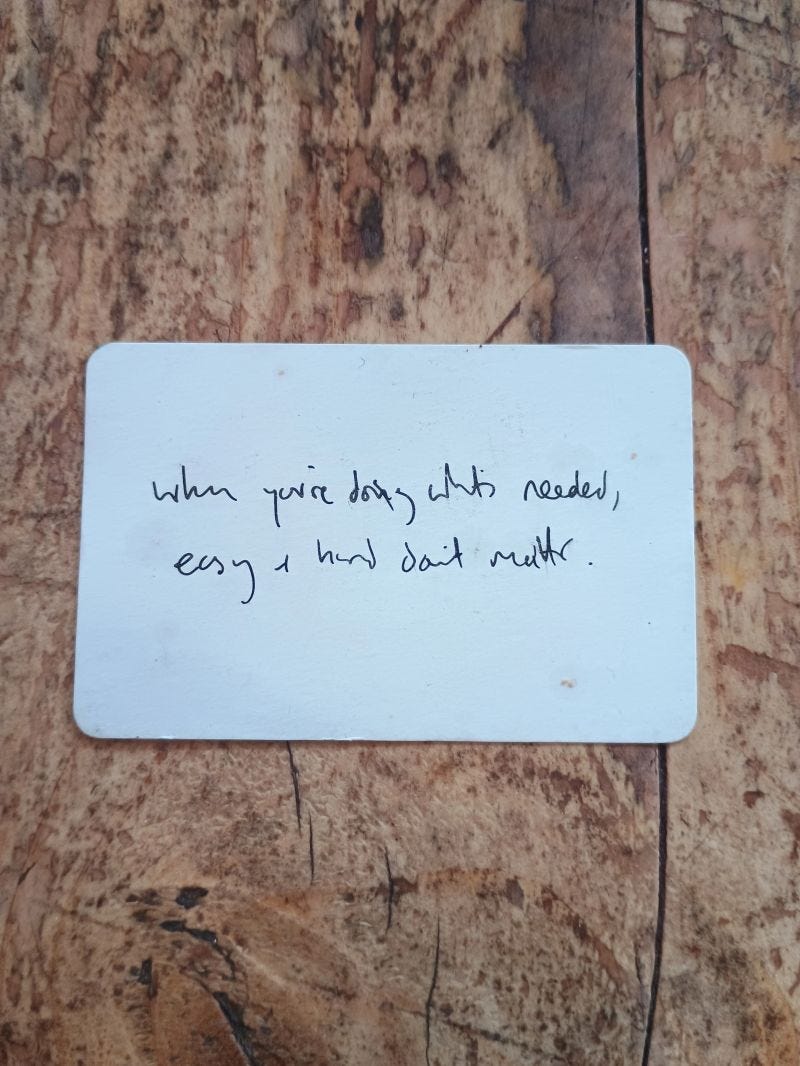 when you're doing what's needed,
easy & hard don't matter.